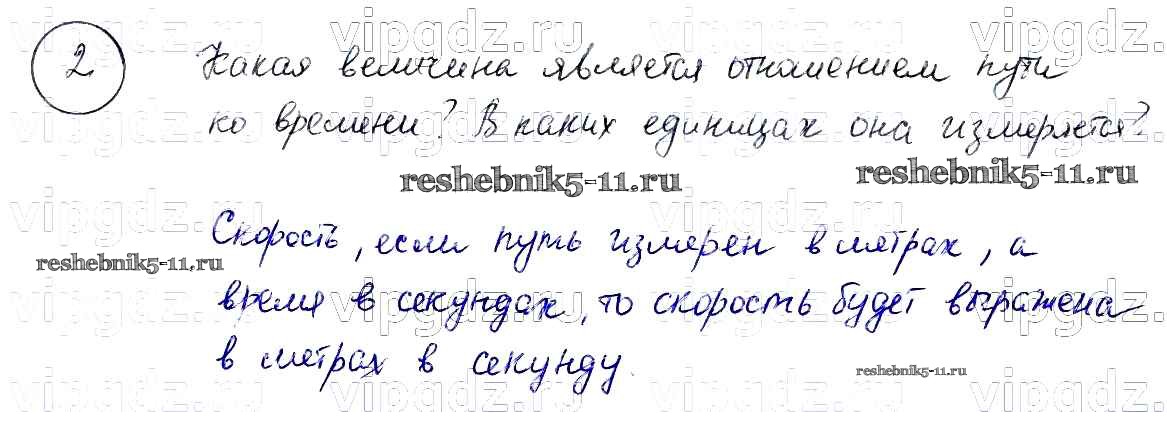 2 Какая величина является отношением пути
ко времени? В каких единицах она измеряется?
reshebnik5-11.ru
reshebnik5-11.ru
Скорость, если путь измерен в метрах, а
reshebnik5-11.ru
время в секундах, то скорость будет выражена
в метрах в секунду.
reshebnik5-11.ru
vipgdz.ru vipgdz.ru vipgdz.ru vipgdz.ru